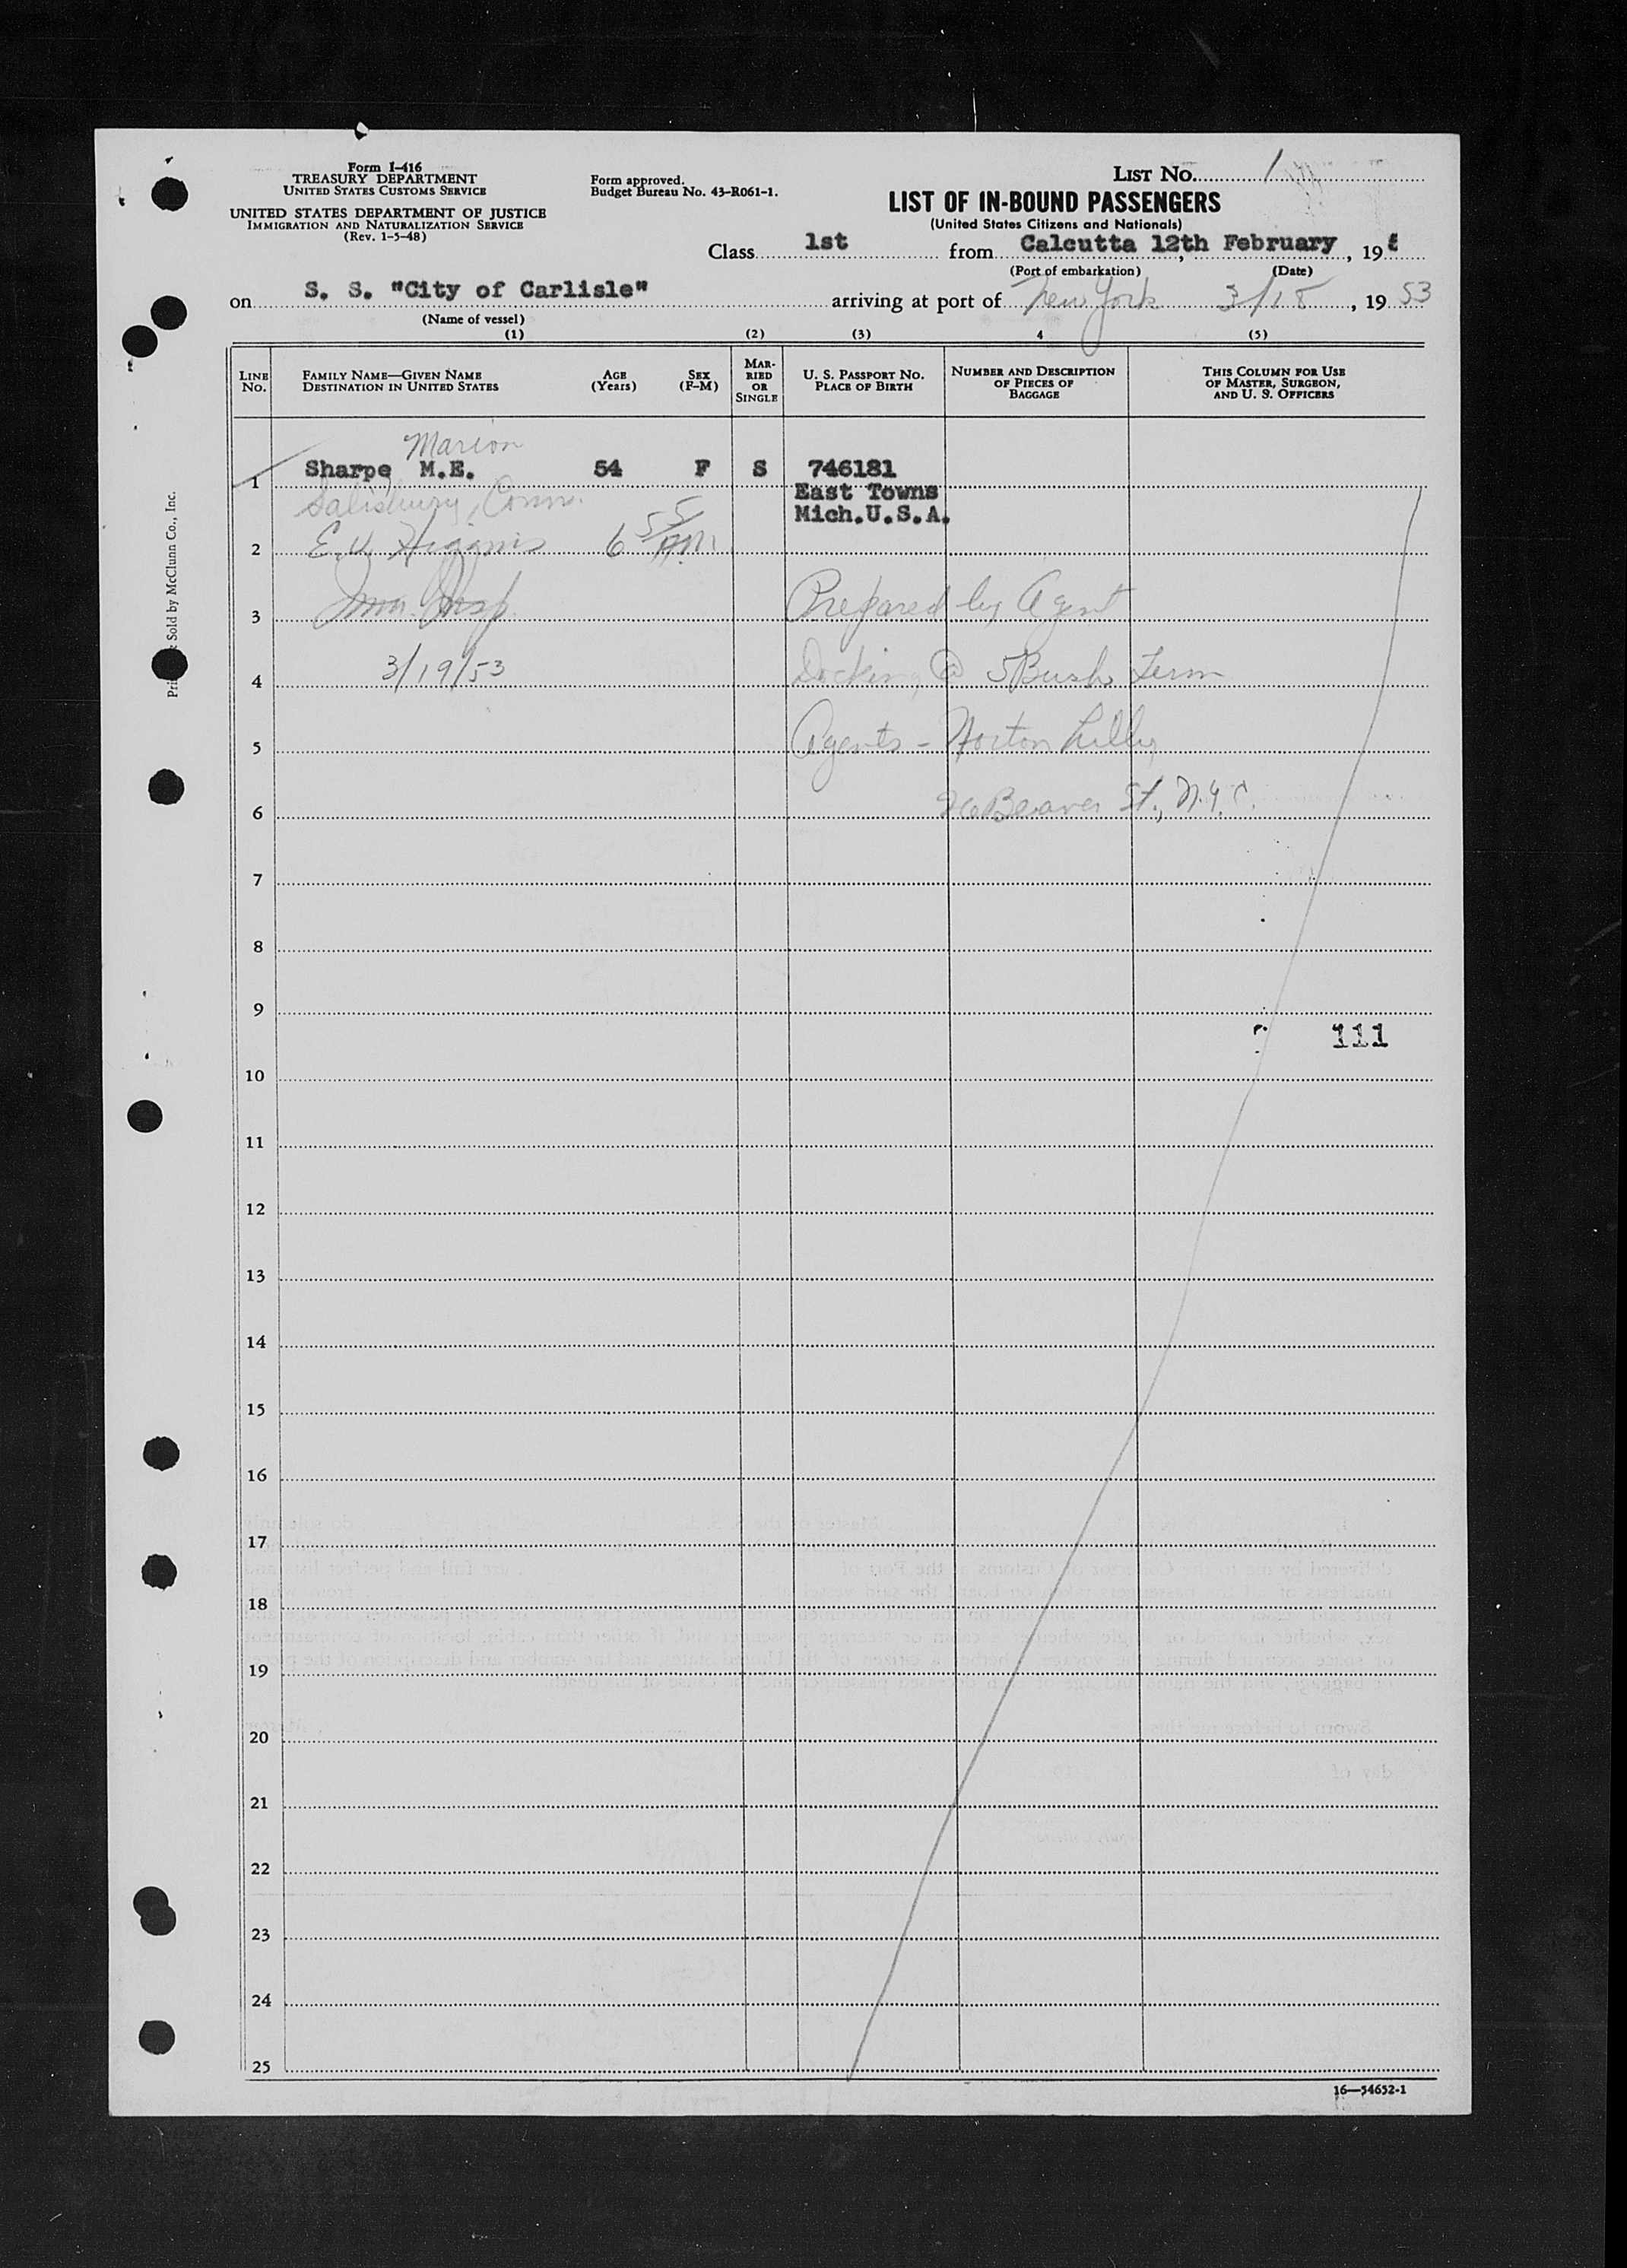 Form I-416
TREASURY DEPARTMENT
UNITED STATES CUSTOMS SERVICE
UNITED STATES DEPARTMENT OF JUSTICE
IMMIGRATION AND NATURALIZATION SERVICE
(Rev. 1-5-48)
Form approved.
Budget Bureau No. 43-R061-1.
LIST NO. 1
LIST OF IN-BOUND PASSENGERS
(United States Citizens and Nationals)
Class 1st from Calcutta 12th February, 195
(Port of embarkation) (Date)
on S. S. "City of Carlisle" arriving at port of New York 3/18, 1953
(Name of vessel)
(1) (2) (3) 4 (5)
LINE No.
FAMILY NAME—GIVEN NAME
DESTINATION IN UNITED STATES
AGE (Years)
SEX (F-M)
MARRIED OR SINGLE
U. S. PASSPORT NO.
PLACE OF BIRTH
NUMBER AND DESCRIPTION OF PIECES OF BAGGAGE
THIS COLUMN FOR USE OF MASTER, SURGEON, AND U. S. OFFICERS
Marion
1 Sharpe, M.E. 54 F S 746181
Salisbury, Conn. East Towns
Mich.U.S.A.
2 E. V. Higgins 6 55 AM
3 Imm. Insp. Prepared by Agent
4 3/19/53 Docking @ 5 Bush Term
5 Agents - Norton Lilly
6 26 Beaver St., N.Y.C.
7
8
9
111
10
11
12
13
14
15
16
17
18
19
20
21
22
23
24
25
16—54652-1
Sold by McClunn Co., Inc.